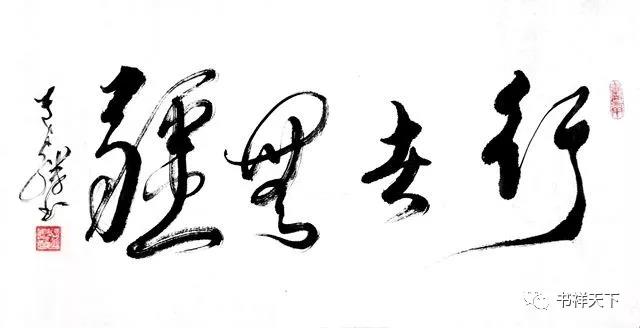 行者無疆
书祥天下